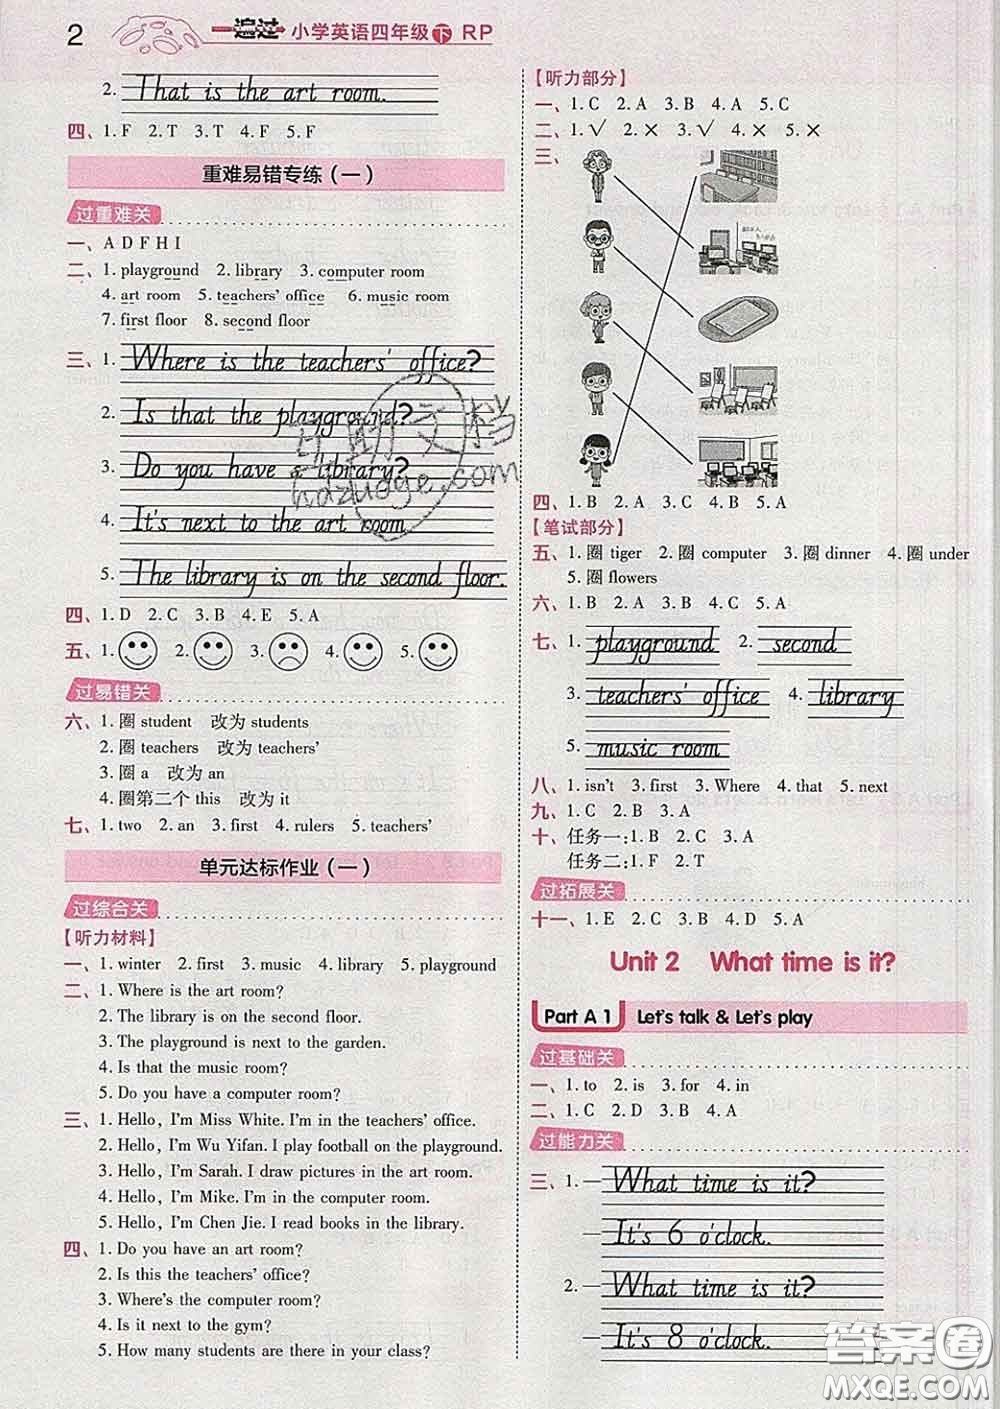 2 一遍过 小学英语四年级 下 RP
2. That is the art room.
四、1. F 2. T 3. T 4. F 5. F
重难易错专练（一）
过重难关
一、A D F H I
二、1. playground 2. library 3. computer room
4. art room 5. teachers' office 6. music room
7. first floor 8. second floor
三、1. Where is the teachers' office?
2. Is that the playground?
3. Do you have a library?
4. It's next to the art room.
5. The library is on the second floor.
四、1. D 2. C 3. B 4. E 5. A
五、1. 2. 3. 4. 5.
过易错关
六、1. 圈 student 改为 students
2. 圈 teachers 改为 teachers'
3. 圈 a 改为 an
4. 圈第二个 this 改为 it
七、1. two 2. an 3. first 4. rulers 5. teachers'
单元达标作业（一）
过综合关
【听力材料】
一、1. winter 2. first 3. music 4. library 5. playground
二、1. Where is the art room?
2. The library is on the second floor.
3. The playground is next to the garden.
4. Is that the music room?
5. Do you have a computer room?
三、1. Hello, I'm Miss White. I'm in the teachers' office.
2. Hello, I'm Wu Yifan. I play football on the playground.
3. Hello, I'm Sarah. I draw pictures in the art room.
4. Hello, I'm Mike. I'm in the computer room.
5. Hello, I'm Chen Jie. I read books in the library.
四、1. Do you have an art room?
2. Is this the teachers' office?
3. Where's the computer room?
4. Is it next to the gym?
5. How many students are there in your class?
【听力部分】
一、1. C 2. A 3. B 4. A 5. C
二、1. ✓ 2. × 3. ✓ 4. × 5. ×
三、
四、1. B 2. A 3. C 4. B 5. A
【笔试部分】
五、1. 圈 tiger 2. 圈 computer 3. 圈 dinner 4. 圈 under
5. 圈 flowers
六、1. B 2. A 3. C 4. B 5. A
七、1. playground 2. second
3. teachers' office 4. library
5. music room
八、1. isn't 3. first 3. Where 4. that 5. next
九、1. C 2. B 3. A
十、任务一：1. B 2. C 3. A
任务二：1. F 2. T
过拓展关
十一、1. E 2. C 3. B 4. D 5. A
Unit 2 What time is it?
Part A 1 Let's talk & Let's play
过基础关
一、1. to 2. is 3. for 4. in
二、1. C 2. D 3. B 4. A
过能力关
三、1. —What time is it?
—It's 6 o'clock.
2. —What time is it?
—It's 8 o'clock.
答案圈
MXQE.COM